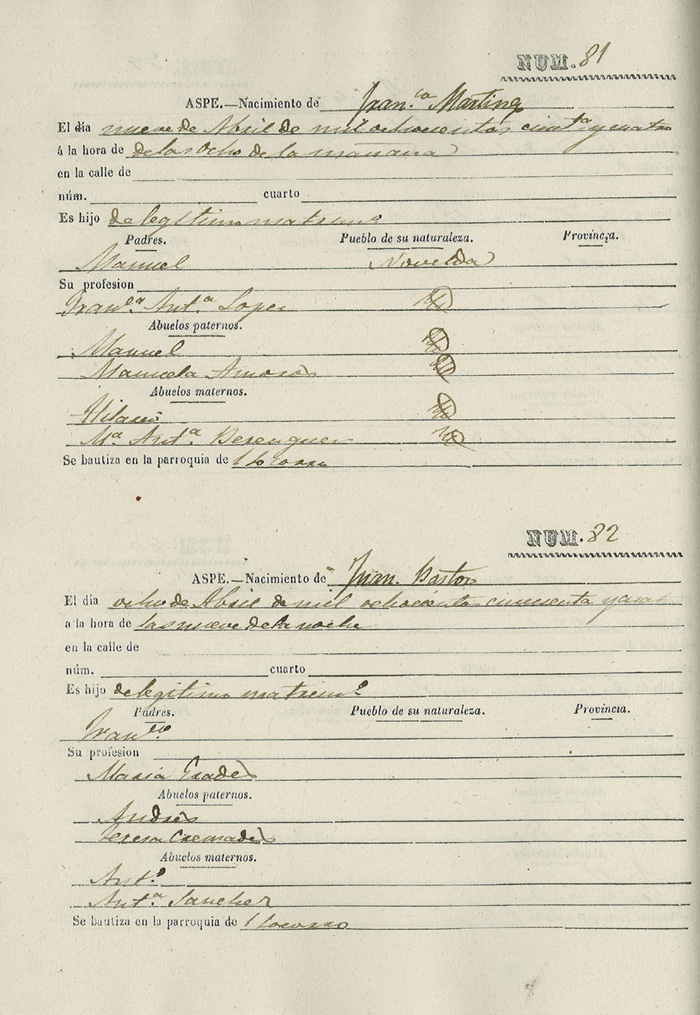 NUM. 81
ASPE.—Nacimiento de Fran.ca Martinez
El día nueve de Abril de mil ochocientos cincta y cuatro
á la hora de de las ocho de la mañana
en la calle de
núm. cuarto
Es hijo de legitimo matrimo
Padres. Pueblo de su naturaleza. Provincia.
Manuel Novelda
Su profesion
Fran.ca Ant.a Lopez
Abuelos paternos.
Manuel
Manuela Amoros
Abuelos maternos.
Hilario
Ma. Ant.a Berenguer
Se bautiza en la parroquia de
NUM. 82
ASPE.—Nacimiento de Juan Pastor
El día ocho de Abril de mil ochocientos cincuenta y cuat
a la hora de las nueve de la noche
en la calle de
núm. cuarto
Es hijo de legitimo matrimo
Padres. Pueblo de su naturaleza. Provincia.
Fran.co
Su profesion
María Prades
Abuelos paternos.
Andres
Teresa Cremades
Abuelos maternos.
Ant.o
Ant.a Sanchez
Se bautiza en la parroquia de l Socorro